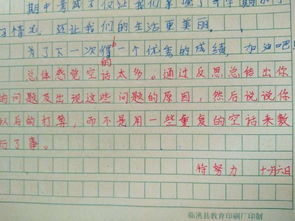 期中考试不仅让我们掌握了学期
习情况，还让我们的生活更美丽。
为了下一次得一个优秀的成绩，加油吧！
总体感觉空话太多。通过反思总结出你
的问题及出现这些问题的原因，然后说说你
以后的打算，而不是用一些重复的空话来敷
衍了事。
待努力 十一月六日
临洮县教育印刷厂印制